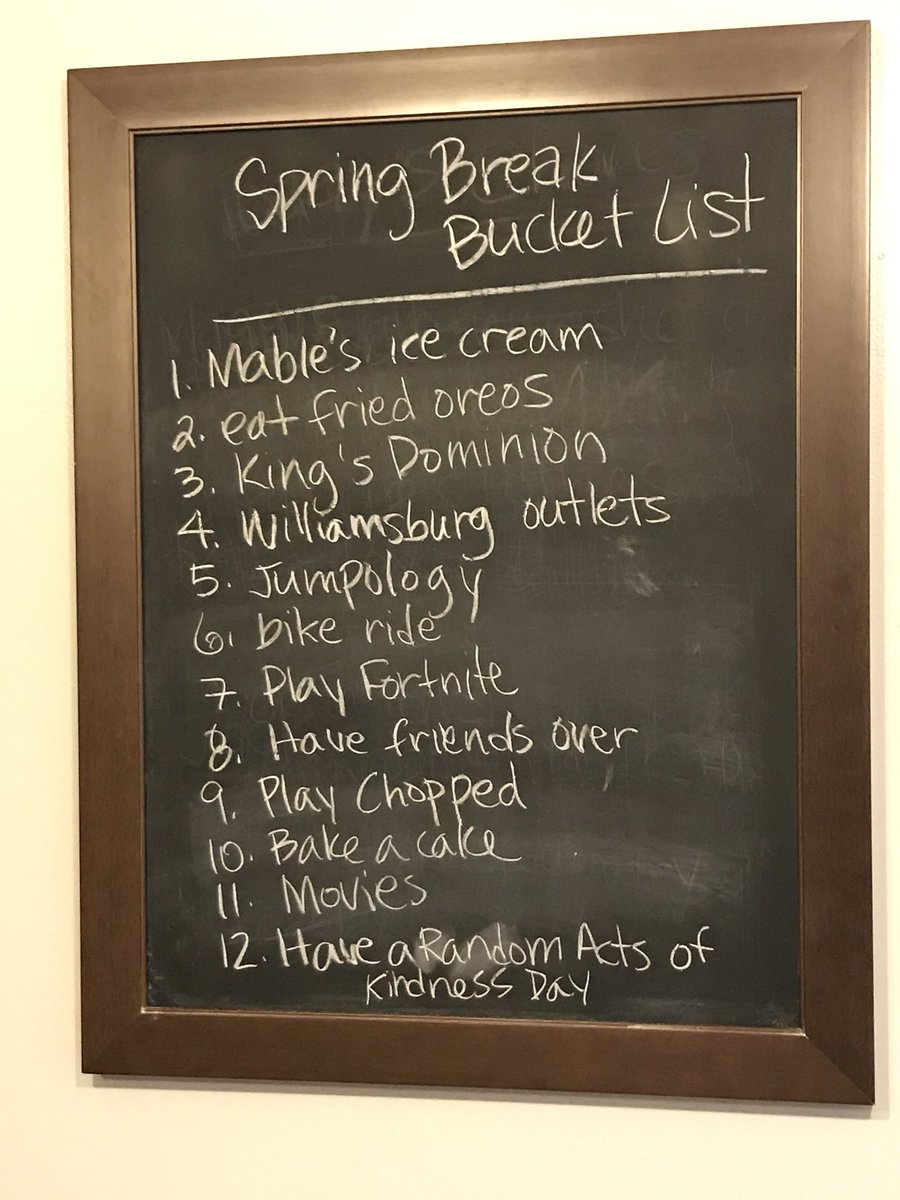 Spring Break
Bucket List
1. Mable's ice cream
2. eat fried oreos
3. King's Dominion
4. Williamsburg outlets
5. Jumpology
6. bike ride
7. Play Fortnite
8. Have friends over
9. Play Chopped
10. Bake a cake
11. Movies
12. Have a Random Acts of
Kindness Day